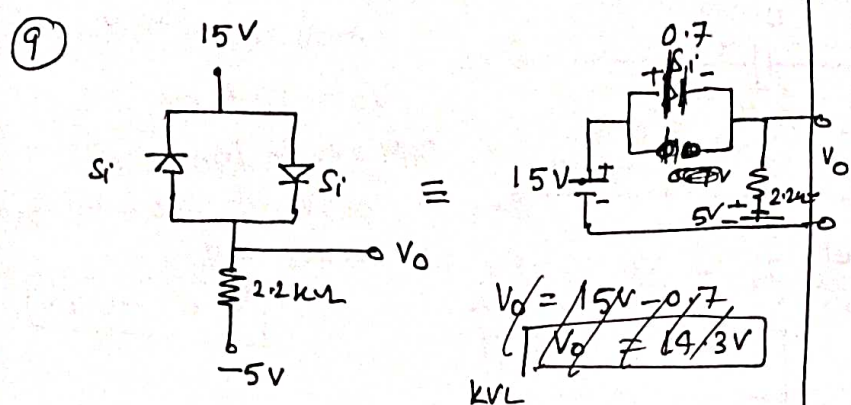 9
15V
Si
Si
V₀
2.2kΩ
-5V
≡
0.7
+ Si -
15V
+
-
V₀
5V
+
-
V₀ = 15V - 0.7
V₀ = 14.3V
KVL